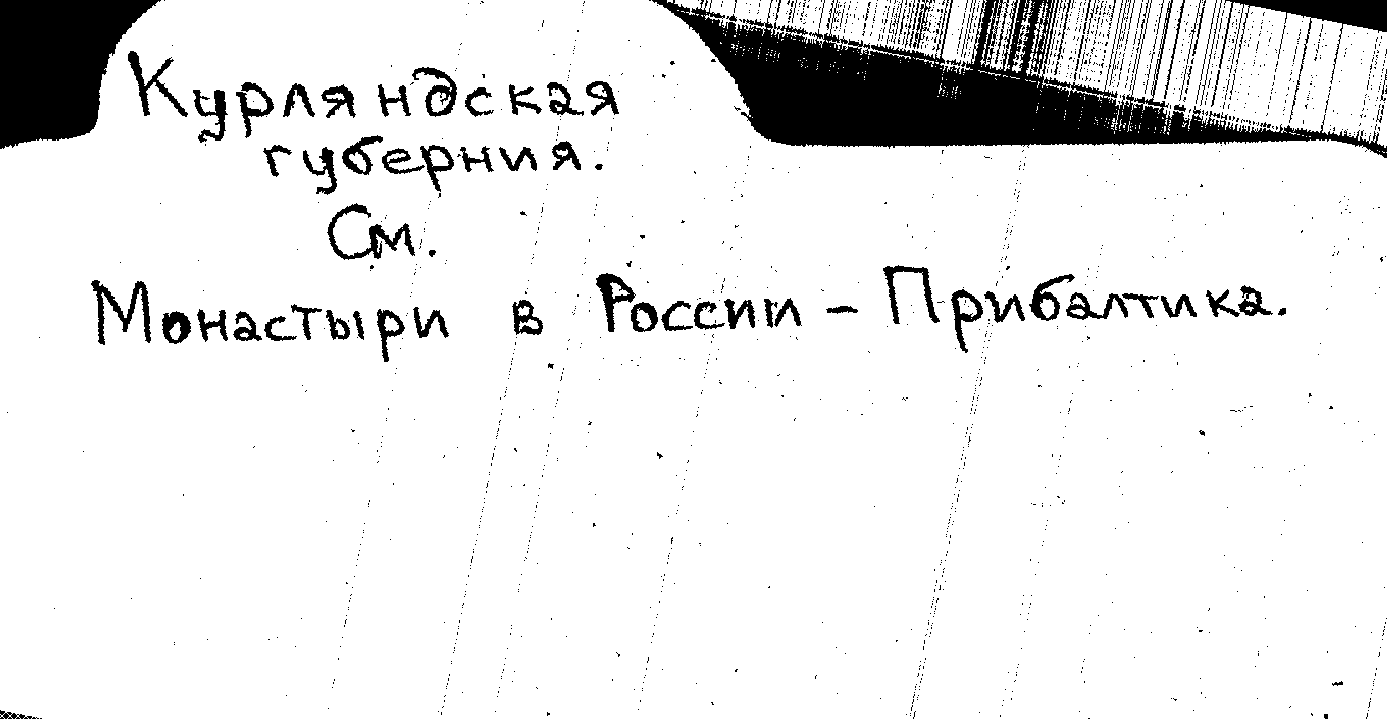 Курляндская
губерния.
См.
Монастыри в России - Прибалтика.